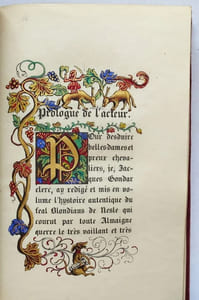 Prologue de l'acteur.
Pour desduire
belles dames et
preux cheva-
liers, je, Jac-
ques Gondar
clerc, ay redigé et mis en
volume l'hystoire autentique du
feal Blondiaus de Nesle qui
courut par toute Almaigne
querre le très vaillant et très